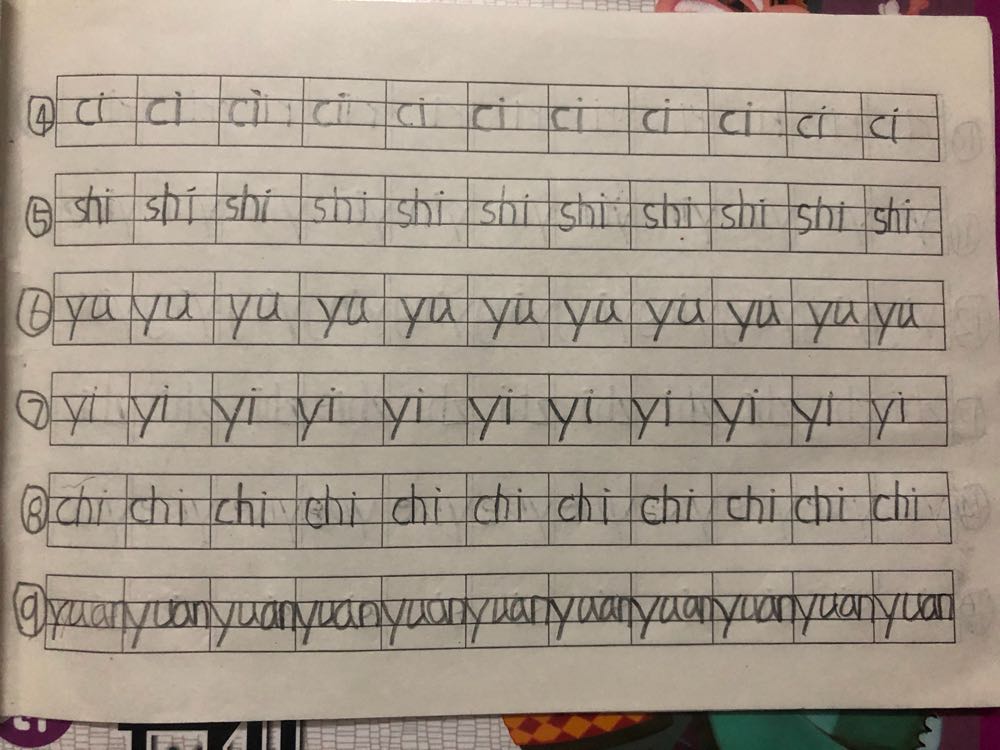 ④ ci ci ci ci ci ci ci ci ci ci ci
⑤ shi shi shi shi shi shi shi shi shi shi shi
⑥ yu yu yu yu yu yu yu yu yu yu yu
⑦ yi yi yi yi yi yi yi yi yi yi yi
⑧ chi chi chi chi chi chi chi chi chi chi chi
⑨ yuan yuan yuan yuan yuan yuan yuan yuan yuan yuan yuan